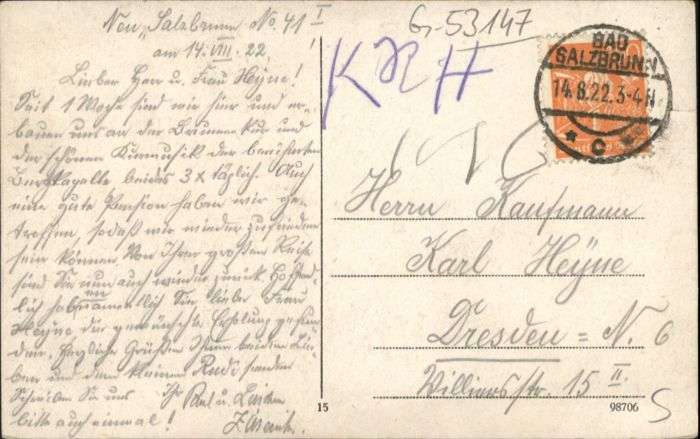 Neu "Salzbrunn No. 41 I
am 14. VIII. 22
Lieber Herr u. Frau Heyne!
Seit 1 Woche sind wir hier und er-
bauen uns an der Brunnenkur und
der schönen Kurmusik der berühmten
beides 3x täglich. Auch
eine gute Pension haben wir ge-
troffen, sodaß wir wieder zufrieden
sein können. Von Ihrer großen Reise
sind Sie nun auch wieder zurück. Hoffent-
lich haben Sie liebe Frau
Heyne die gewünschte Erholung gefun-
den. Herzliche Grüße Ihnen beiden Lie-
ben und dem kleinen Rudi senden
Schreiben Sie uns
bitte auch einmal!
Ihr Paul u.
G-53147
K R H
BAD
SALZBRUNN
14.8.22.3-4N.
* C *
Herrn Kaufmann
Karl Heyne
Dresden = N. 6
Str. 15 II.
15
98706